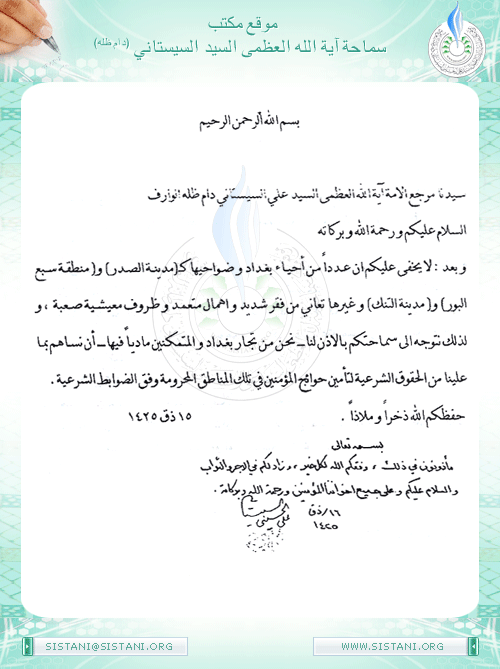 موقع مكتب
سماحة آية الله العظمى السيد السيستاني (دام ظله)
بسم الله الرحمن الرحيم
سيدنا مرجع الامة آية الله العظمى السيد علي السيستاني دام ظله الوارف
السلام عليكم ورحمة الله وبركاته
وبعد : لا يخفى عليكم ان عدداً من أحياء بغداد وضواحيها كـ(مدينة الصدر) و(منطقة سبع
البور) و(مدينة التنك) وغيرها تعاني من فقر شديد واهمال متعمد وظروف معيشية صعبة ، و
لذلك نتوجه الى سماحتكم بالاذن لنا ـ نحن من تجار بغداد والمتمكنين مادياً فيها ـ أن نساهم بما
علينا من الحقوق الشرعية لتأمين حوائج المؤمنين في تلك المناطق المحرومة وفق الضوابط الشرعية .
حفظكم الله ذخراً وملاذاً . ١٥ ذق ١٤٢٥
بسمه تعالى
مأذونون في ذلك ، وفقكم الله لكل خير ، وزاد لكم في الاجر والثواب
والسلام عليكم وعلى جميع اخواننا المؤمنين ورحمة الله وبركاته .
١٦/ذق
١٤٢٥
علي الحسيني السيستاني
SISTANI@SISTANI.ORG
WWW.SISTANI.ORG